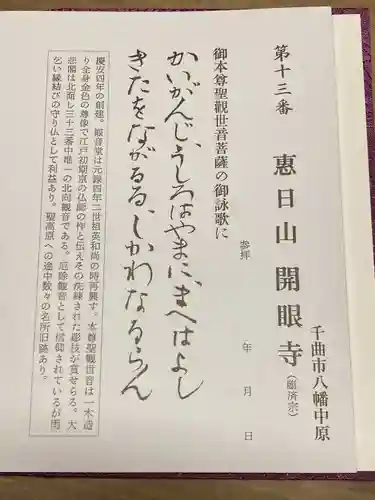 第十三番 惠日山 開眼寺 (臨済宗)
千曲市八幡中原
参拝 年 月 日
御本尊聖觀世音菩薩の御詠歌に
かいがんじ、うしろはやまに、まへはよし
きたをながるる、じかわなるらん
慶安四年の創建。観音堂は元録四年二世祖英和尚の時再興す。本尊聖観世音は一木造
り全身金色の尊像で江戸初期京の仏師の作と伝えその洗練された彫技が賞せらる。大
悲閣は北面し三十三番中唯一の北向観音である。厄除観音として信仰されているが雨
乞い縁結びの守り仏として利益あり。聖高原への途中数々の名所旧跡あり。